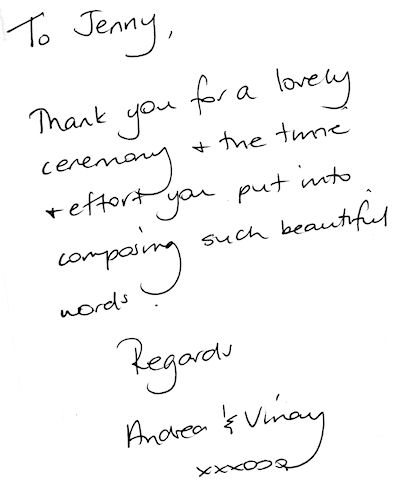 To Jenny,
Thank you for a lovely
ceremony + the time
+ effort you put into
composing such beautiful
words.
Regards
Andrea & Vinay
xxxooo